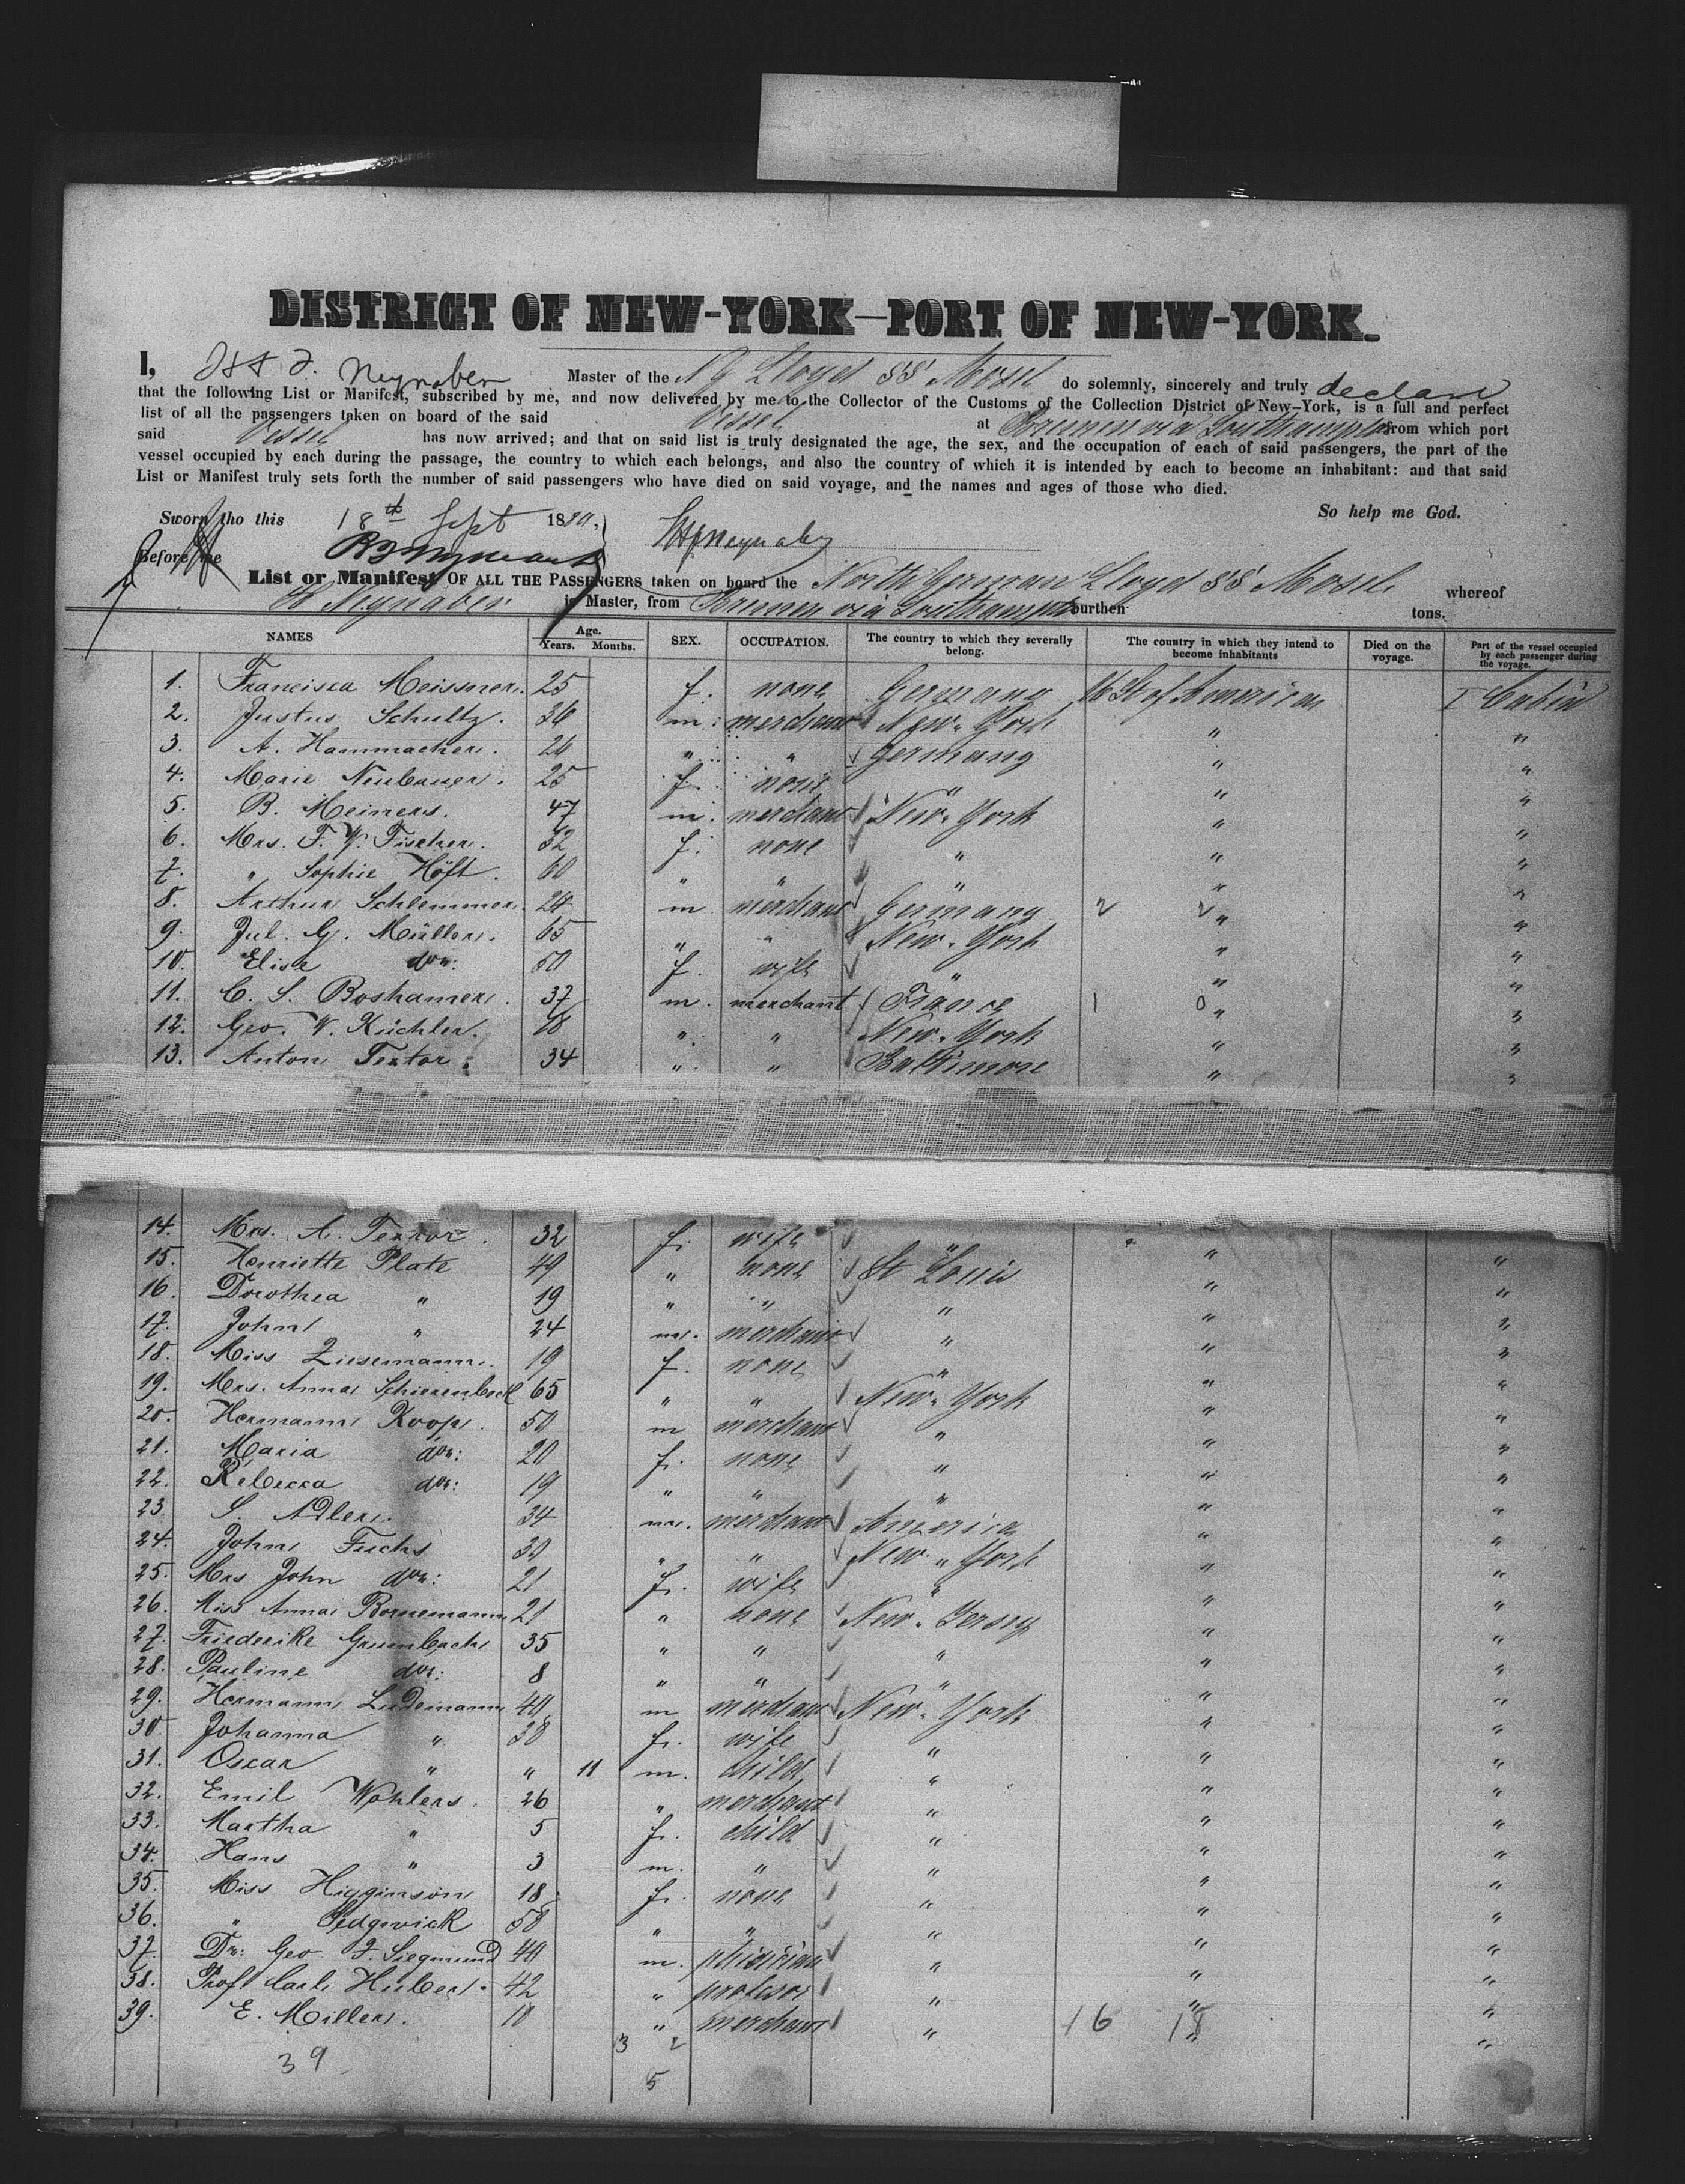 DISTRICT OF NEW-YORK—PORT OF NEW-YORK.
I, H F. Neynaber Master of the N G Lloyd SS Mosel do solemnly, sincerely and truly declare
that the following List or Manifest, subscribed by me, and now delivered by me to the Collector of the Customs of the Collection District of New-York, is a full and perfect
list of all the passengers taken on board of the said Vessel at Bremen via Southampton from which port
said Vessel has now arrived; and that on said list is truly designated the age, the sex, and the occupation of each of said passengers, the part of the
vessel occupied by each during the passage, the country to which each belongs, and also the country of which it is intended by each to become an inhabitant: and that said
List or Manifest truly sets forth the number of said passengers who have died on said voyage, and the names and ages of those who died.
So help me God.
Sworn tho this 18th Sept 1880, HFNeynaber
Before me
List or Manifest OF ALL THE PASSENGERS taken on board the North German Lloyd SS Mosel whereof
H Neynaber is Master, from Bremen via Southampton burthen tons.
NAMES Age. Years. Months. SEX. OCCUPATION. The country to which they severally belong. The country in which they intend to become inhabitants Died on the voyage. Part of the vessel occupied by each passenger during the voyage.
1. Francisca Meissner. 25 f. none Germany U St of America I Cabin
2. Justus Schultz. 36 m. merchant New-York " "
3. A. Hammacher. 26 " " Germany " "
4. Marie Neubauer. 25 f. none " " "
5. B. Meiners. 47 m. merchant New-York " "
6. Mrs. F. W. Fischer. 32 f. none " " "
7. " Sophie Höft. 60 " " " " "
8. Arthur Schlemmer. 24 m merchant Germany " "
9. Jul. G. Müller. 65 " " New-York " "
10. Elise do: 50 f. wife " " "
11. C. S. Boshamer. 37 m. merchant France 1 0 " "
12. Geo. W. Küchler. 18 " " New-York " "
13. Anton Textor. 34 " " Baltimore " "
14. Mrs. A. Textor. 32 f. wife " " "
15. Henriette Plate 49 " none St Louis " "
16. Dorothea " 19 " " " " "
17. John " 24 m. merchant " " "
18. Miss Ziesemann. 19 f. none " " "
19. Mrs. Anna Schierenbeck 65 " " New-York " "
20. Hermann Koop. 50 m merchant " " "
21. Maria do: 20 f. none " " "
22. Rebecca do: 19 " " " " "
23. S. Adler. 34 m. merchant America " "
24. John Fuchs 30 " " New-York " "
25. Mrs John do: 21 f. wife " " "
26. Miss Anna Bornemann 21 " none New-Jersey " "
27. Friederike Grumbach 35 " " " " "
28. Pauline do: 8 " " " " "
29. Hermann Ludemann 40 m merchant New-York " "
30. Johanna " 38 f. wife " " "
31. Oscar " " 11 m. child " " "
32. Emil Wohlers. 26 " merchant " " "
33. Martha " 5 f. child " " "
34. Hans " 3 m. " " " "
35. Miss Higginson 18 f. none " " "
36. " Sedgwick 58 " " " " "
37. Dr: Geo F. Siegmund 40 m. phisician " " "
38. Prof Carl Huber. 42 " profesor " " "
39. E. Miller. 18 " merchant " 16 18 " "
3 2
39
5